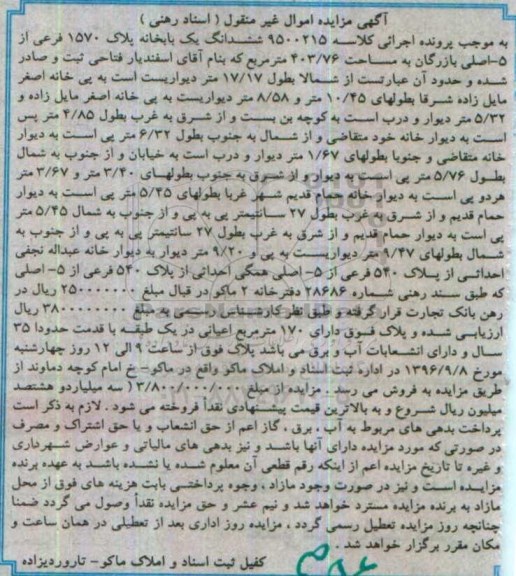 آگهی مزایده اموال غیر منقول ( اسناد رهنی )
به موجب پرونده اجرائی کلاسه ۹۵۰۰۲۱۵ ششدانگ یک بابخانه پلاک ۱۵۷۰ فرعی از
۵-اصلی بازرگان به مساحت ۴۰۳/۷۶ مترمربع که بنام آقای اسفندیار فتاحی ثبت و صادر
شده و حدود آن عبارتست از شمالا بطول ۱۷/۱۷ متر دیواریست است به پی خانه اصغر
مایل زاده شرقا بطولهای ۱۰/۴۵ متر و ۸/۵۸ متر دیواریست به پی خانه اصغر مایل زاده و
۵/۳۲ متر دیوار و درب است به کوچه بن بست و از شرق به غرب بطول ۴/۸۵ متر پس
است به دیوار خانه خود متقاضی و از شمال به جنوب بطول ۶/۳۲ متر پی است به دیوار
خانه متقاضی و جنوبا بطولهای ۱/۶۷ متر دیوار و درب است به خیابان و از جنوب به شمال
بطول ۵/۷۶ متر پی است به دیوار و از شرق به جنوب بطولهای ۳/۴۰ متر و ۳/۶۷ متر
هردو پی است به دیوار حمام قدیم شهر غربا بطولهای ۵/۴۵ متر پی است به دیوار
حمام قدیم و از شرق به غرب بطول ۲۷ سانتیمتر پی به پی و از جنوب به شمال ۵/۴۵ متر
پی است به دیوار حمام قدیم و از شرق به غرب بطول ۲۷ سانتیمتر پی به پی و از جنوب به
شمال بطولهای ۸/۴۷ متر دیواریست به پی و ۹/۲۰ متر دیوار به دیوار خانه عبداله نجفی
احداثی از پلاک ۵۴۰ فرعی از ۵- اصلی همگی احداثی از پلاک ۵۴۰ فرعی از ۵- اصلی
که طبق سند رهنی شماره ۲۸۶۸۶ دفترخانه ۲ ماکو در قبال مبلغ ۲۵۰۰۰۰۰۰۰۰ ریال در
رهن بانک تجارت قرار گرفته و طبق نظر کارشناس رسمی به مبلغ ۳۸۰۰۰۰۰۰۰۰ ریال
ارزیابی شده و پلاک فوق دارای ۱۷۰ مترمربع اعیانی در یک طبقه با قدمت حدودا ۳۵
سال و دارای انشعابات آب و برق می باشد پلاک فوق از ساعت ۹ الی ۱۲ روز چهارشنبه
مورخ ۱۳۹۶/۹/۸ در اداره ثبت اسناد و املاک ماکو واقع در ماکو- خ امام کوچه دماوند از
طریق مزایده به فروش می رسد. مزایده از مبلغ ۳/۸۰۰/۰۰۰/۰۰۰ سه میلیاردو هشتصد
میلیون ریال شروع و به بالاترین قیمت پیشنهادی نقدأ فروخته می شود . لازم به ذکر است
پرداخت بدهی های مربوط به آب ، برق ، گاز اعم از حق انشعاب و یا حق اشتراک و مصرف
در صورتی که مورد مزایده دارای آنها باشد و نیز بدهی های مالیاتی و عوارض شهرداری
و غیره تا تاریخ مزایده اعم از اینکه رقم قطعی آن معلوم شده یا نشده باشد به عهده برنده
مزایده است و نیز در صورت وجود مازاد ، وجوه پرداختی بابت هزینه های فوق از محل
مازاد به برنده مزایده مسترد خواهد شد و نیم عشر و حق مزایده نقدأ وصول می گردد ضمنا
چنانچه روز مزایده تعطیل رسمی گردد ، مزایده روز اداری بعد از تعطیلی در همان ساعت و
مکان مقرر برگزار خواهد شد .
کفیل ثبت اسناد و املاک ماکو- تاروردیزاده